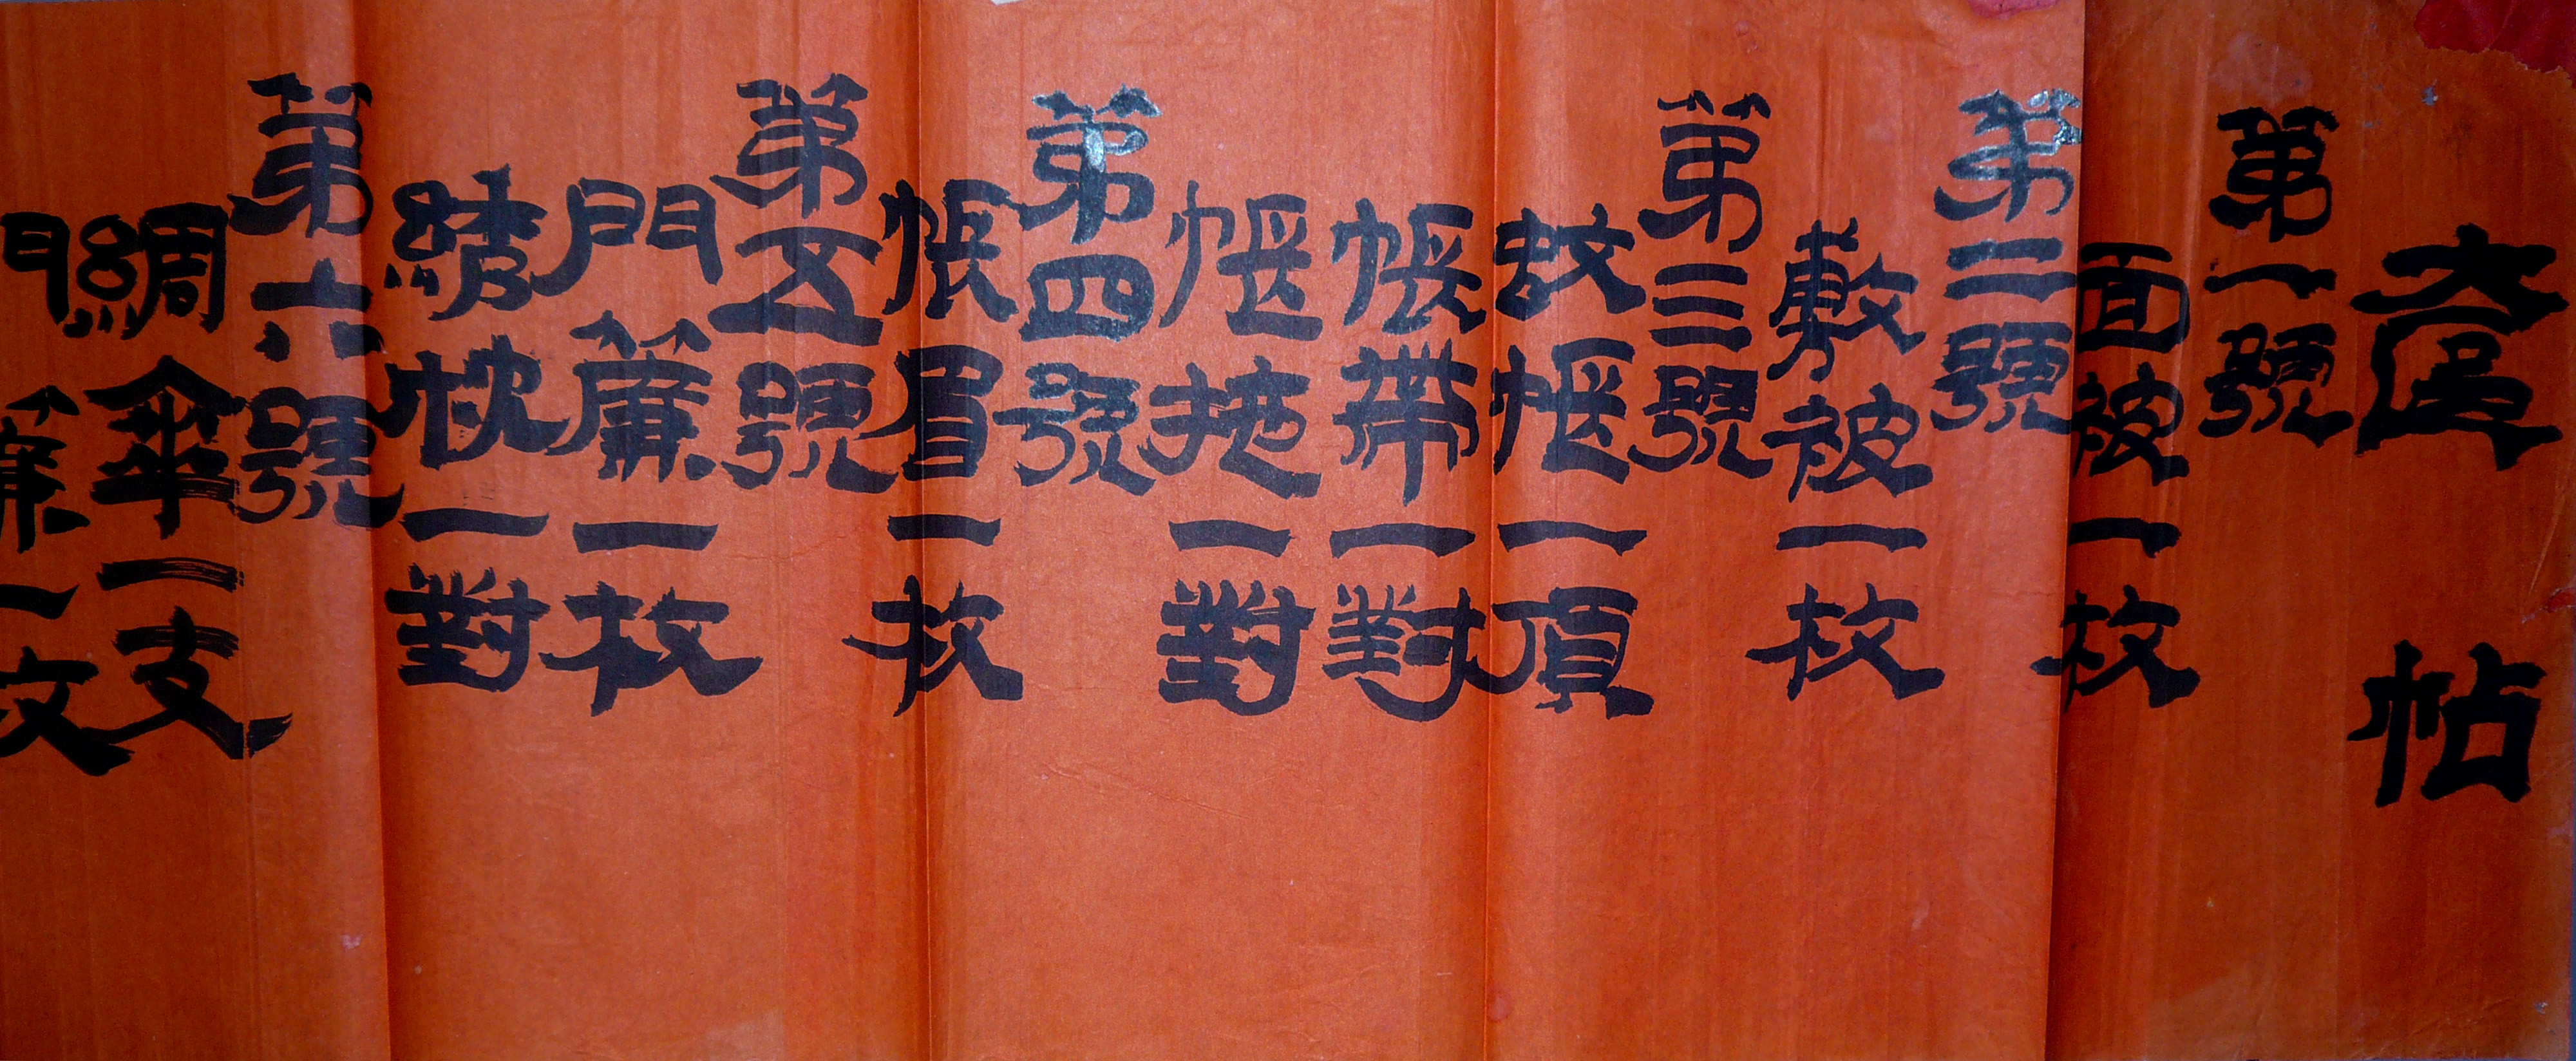 奩帖
第一號
面被一枚
第二號
敷被一枚
第三號
蚊帳一頂
帳帶一對
帳拖一對
第四號
帳眉一枚
第五號
門簾一枚
綉枕一對
第六號
綢傘一支
門簾一枚